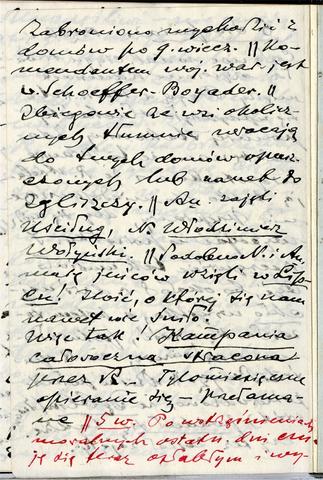 Zabroniono wychodzić z
domów po 9. wiecz. || Ko-
mendantem woj. war. jest
v. Schoeffer-Boyader. ||
Zbiegowie ze wsi okolicz-
nych tłumnie wracają
do swych domów opusz-
czonych lub nawet do
zgliszczy. || Au. zajęli
Uściług, N. Włodzimierz
Wołyński. || Podobno N. i Au.
masę jeńców wzięli w
Ilość, o której się nam
nawet nie śniło.
Więc tak! Kampania
całoroczna stracona
przez R. Tylomiesięczne
opieranie się – przełama-
ne || 5 w. Po wstrząśnieniach
moralnych ostatn. dni czu-
ję się teraz osłabłym i wy-